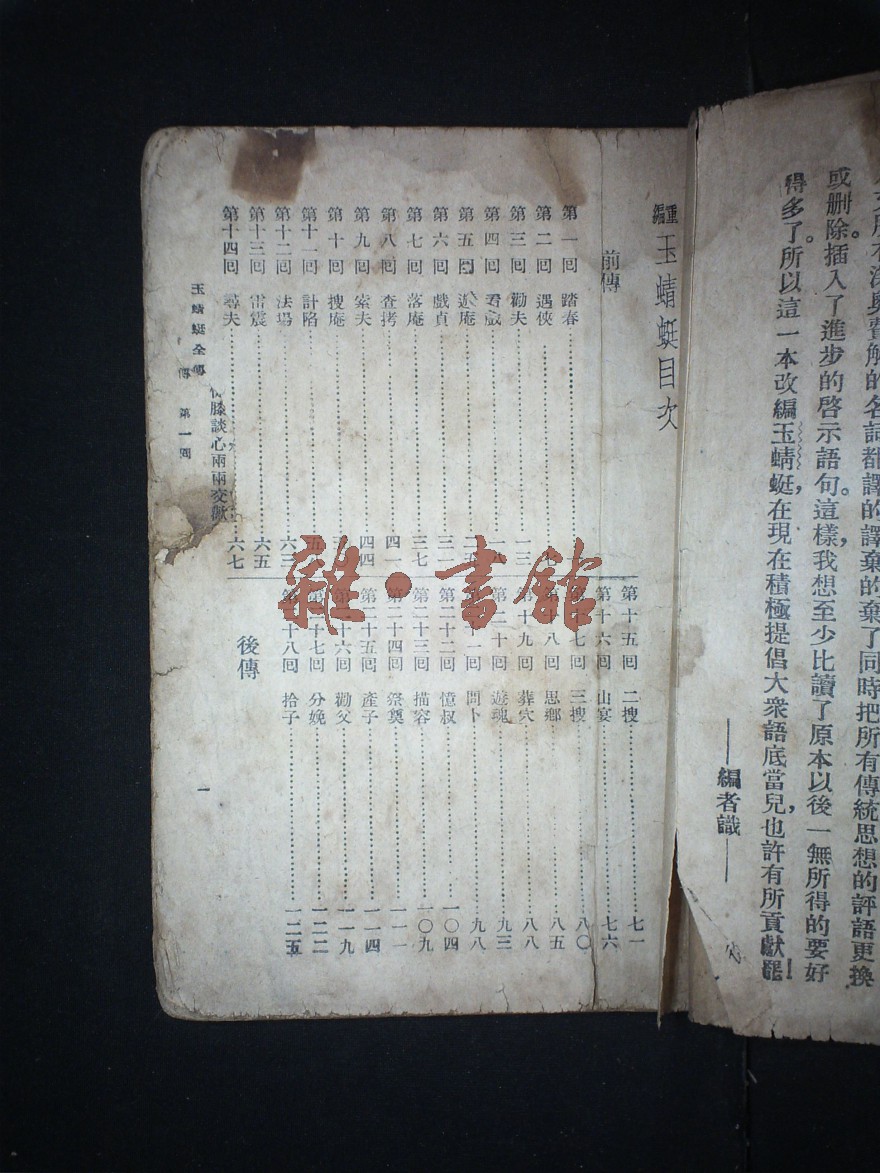 或刪除。插入了進步的啓示語句。這樣，我想至少比讀了原本以後一無所得的要好
得多了。所以這一本改編玉蜻蜓，在現在積極提倡大衆語底當兒，也許有所貢獻罷！
——編者識——
重編 玉蜻蜓目次
前傳
第一回 踏春
第二回 遇俠
第三回 勸夫 一三
第四回 看戲
第五回 遊庵
第六回 戲貞
第七回 落庵 三七
第八回 查拷 四一
第九回 索夫 四四
第十回 搜庵
第十一回 計陷
第十二回 法場 六三
第十三回 雷震 六五
第十四回 尋夫 六七
第十五回 二搜 七一
第十六回 山宴 七六
第十七回 三搜 八〇
第十八回 思鄉 八五
第十九回 葬穴 八八
第二十回 遊魂 九三
第二十一回 問卜 九八
第二十二回 憶叔 一〇四
第二十三回 描容 一〇九
第二十四回 祭奠 一一一
第二十五回 產子 一一四
第二十六回 勸父 一一九
第二十七回 分娩 一二二
第二十八回 拾子 一二五
後傳
膝談心兩兩交歡
玉蜻蜓全傳 傳 第一回
一
雜·書館